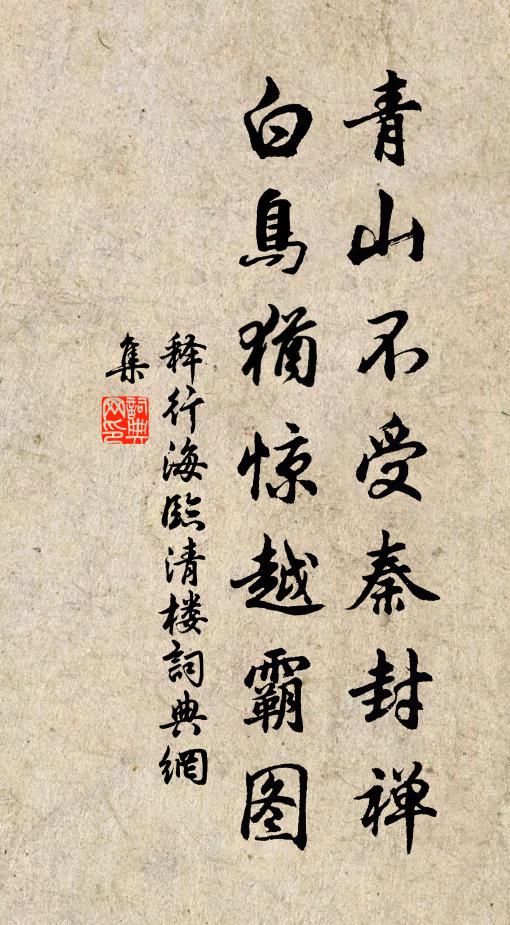 青山不受秦封禅
白鳥猶惊越霸图
释行海臨清楼詞典網
集
詞典
网印